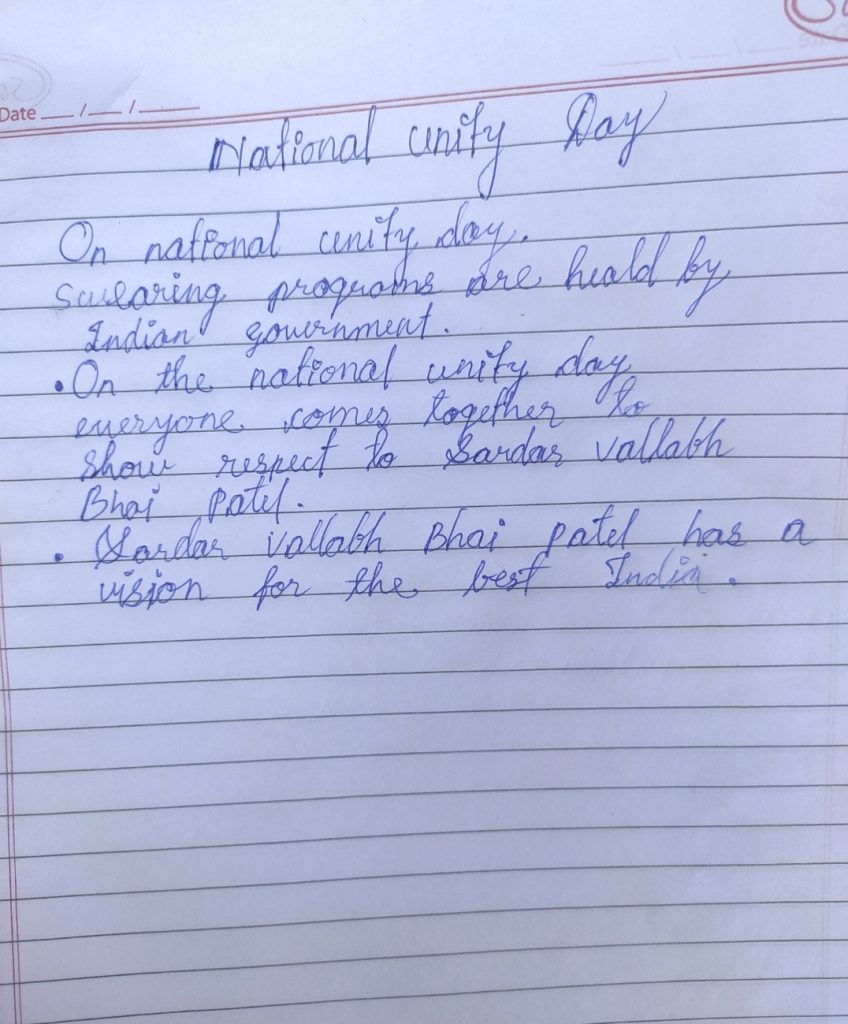 Date __/__/____
National unity Day
On national unity day.
swearing programs are heald by
Indian government.
•On the national unity day
everyone comes together to
show respect to Sardar vallabh
Bhai Patel.
• Sardar Vallabh Bhai patel has a
vision for the best India.